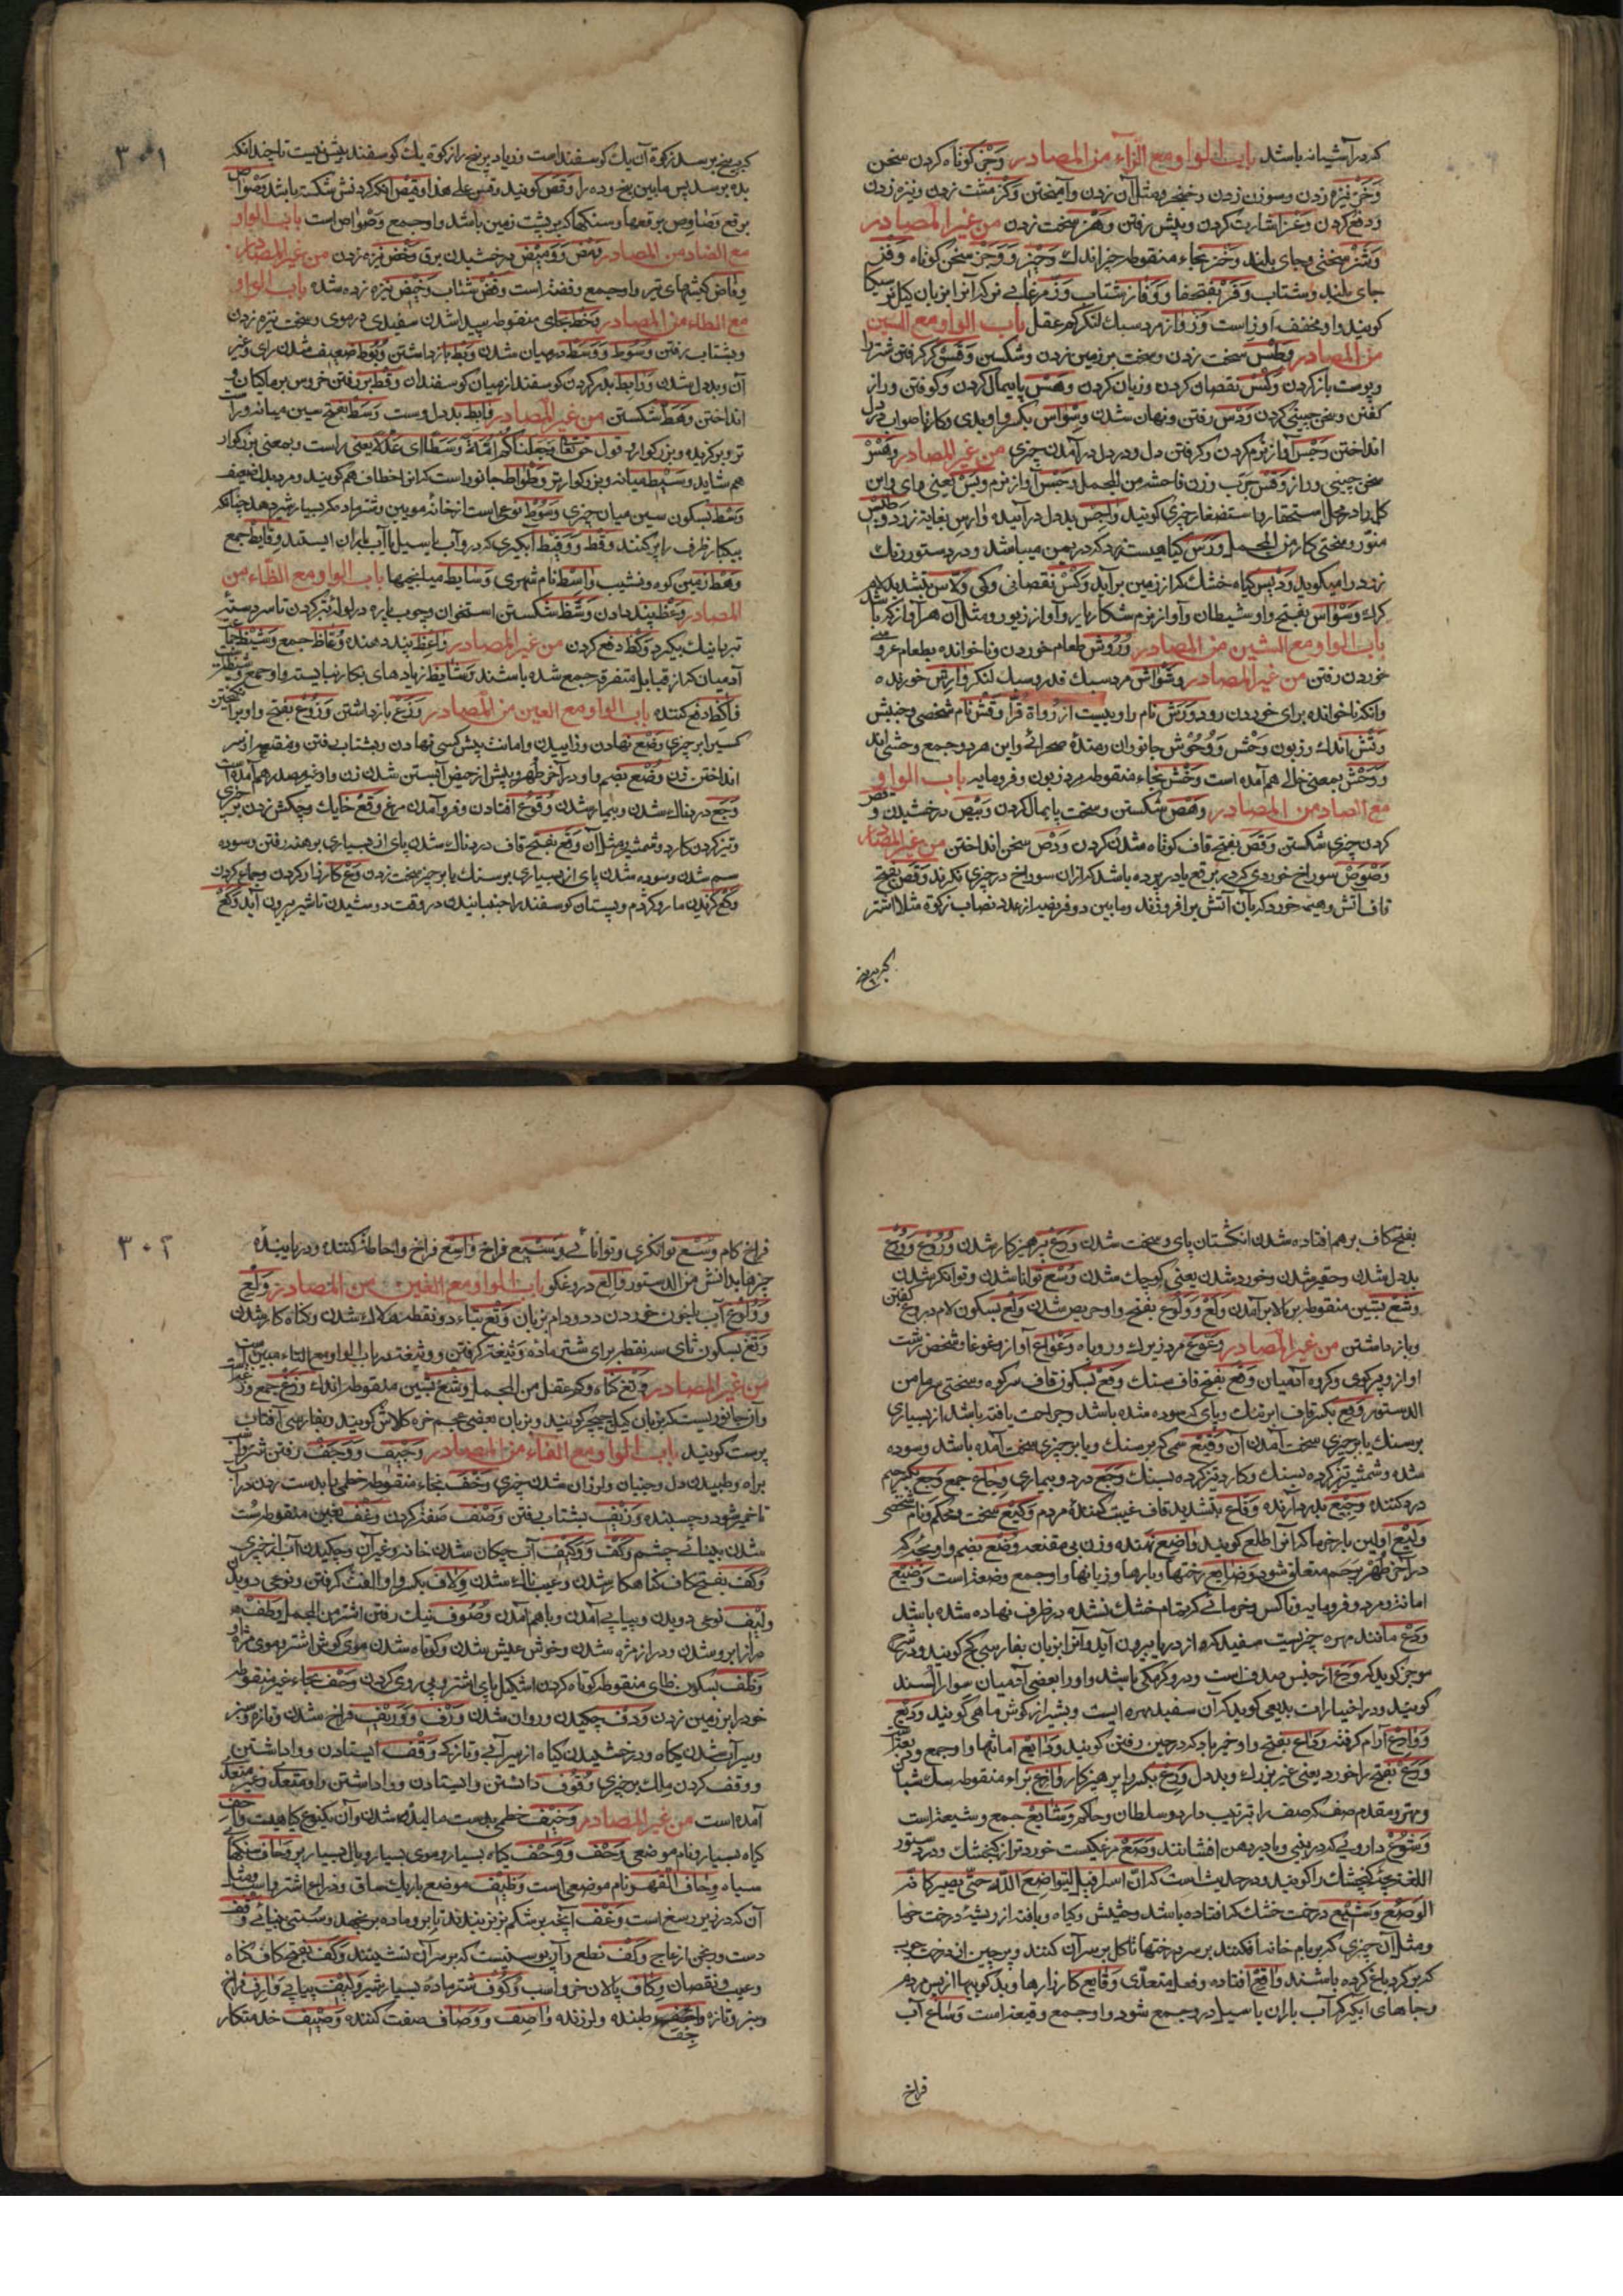 که در آشیانه باشد باب الواو مع الزاء من المصادر وَجْز کوتاه کردن سخن
وَخْز نیزه زدن و سوزن زدن و خنجر و مثل آن زدن و آمیختن وَکْز مشت زدن و نیزه زدن
و دفع کردن وَعْز اشارت کردن و پیش رفتن وَهْز سخت زدن من غیر المصادر
وَشْز سختی و جای بلند وَخْز بخاء منقوطه چیز اندک وَجِیز وَوَجْز سخن کوتاه وَفْز
جای بلند و شتاب وَفَز بفتح فا وَوَفاز شتاب وَزّ مرغابی
کویند و او مخفف اوز است وَزْواز مرد سبک لنکر کم عقل باب الواو مع السین
من المصادر وَطْس سخت زدن و سخت بر زمین زدن و شکستن وَقْس کر کرفتن شتر را
و پوست باز کردن وَکْس نقصان کردن و زیان کردن وَهْس پایمال کردن و کوفتن و راز
کفتن و سخن چینی کردن وَدْس رفتن و نهان شدن وِسْواس بکسر واو بدی و کار ناصواب در دل
انداختن وَجْس آواز نرم کردن و کرفتن دل و در دل در آمدن چیزی من غیر المصادر
کرک وَسْواس بفتح واو شیطان و آواز نرم شکار یا زیور و آواز زیور و مثل آن هر آواز که باشد
باب الواو مع الشین من المصادر وُرُوش طعام خوردن و ناخوانده بطعام عروسی
خوردن رفتن من غیر المصادر وَشْواش مرد سبک قدر و سبک لنکر وارِش خورنده
وانکه ناخوانده برای خوردن رود وَرْش نام راویست از رواة قرّا وَقْش نام شخصی و جنبش
وَتْش اندک و زبون وَحْش وَوُحُوش جانوران رمندهٔ صحرائی و این هر دو جمع وحشی اند
وَوَحْش بمعنی خالی هم آمده است وَخْش بخاء منقوطه مرد زبون و فرومایه باب الواو
مع الصاد من المصادر وَهْص شکستن و سخت پایمال کردن وَبِیص درخشیدن وَقْص
کردن چیزی شکستن وَقَص بفتح قاف کوتاه شدن کردن وَدْص سخن انداختن من غیر المصادر
وَصْوَص سوراخ خوردی که در برقع یا در پرده باشد که از آن سوراخ در چیزی نکرند وَقَص بفتح
قاف آتش و هیمهٔ خورد که بآن آتش برافروزند و مابین دو فریضه از عدد نصاب زکوة مثلا اشتر
که بپنج
۳۰۱
که بپنج برسد زکوة آن یک کوسفند است و زیاد بر پنج را زکوة یک کوسفند بیش نیست تا چندانکه
بده برسد پس مابین پنج و ده را وَقَص کویند و قس علی هذا وَقِیص انکه کردنش شکسته باشد وَصْواص
برقع وَصاوِص برقعها و سنکها که بر پشت زمین باشد و او جمع وَصْواص است باب الواو
مع الضاد من المصادر وَمْض وَوَمِیض درخشیدن برق وَخْض نیزه زدن من غیر المصادر
وِفاض کیشهای تیر و او جمع وفضه است وَفْض شتاب وَخِیض نیزه زده شده باب الواو
مع الطاء من المصادر وَخْط بخای منقوطه پیدا شدن سفیدی در موی و سخت نیزه زدن
و بشتاب رفتن وُسُوط وَوَسْط در میان شدن وَبْط باز داشتن وُبُوط ضعیف شدن رای و غیر
آن و بد دل شدن
انداختن وَهْط شکستن من غیر المصادر وابِط بد دل و سست وَسَط بفتح سین میانه و راست
تر و برکزیده و بزرکوار و قول حق تعا وجعلناکم امّة وسطا ای عدلا یعنی راست و بمعنی بزرکوار
هم شاید وَسِیط میانه و بزرکوارتر وَطْواط جانوریست که انرا خطاف هم کویند و مرد بد دل ضعیف
وَسْط بسکون سین میان چیزی وَسُوط نوعی است از خانهٔ مویین و شتر ماده که بسیار شیر دهد چنانکه
بیکبار ظرف را پر کنند وَقْط وَوَقِیط آبکیری که در و آب باران ایستد وِقاط جمع
وَهْط زمین کوه و نشیب واسِط نام شهری وَسایِط میانجیها باب الواو مع الظاء من
المصادر وَعْظ پند دادن وَشْظ شکستن استخوان و چوب پاره در لوله تبر کردن تا سر دستهٔ
تبر بآن تنک بکیرد وَکْظ دفع کردن من غیر المصادر واعِظ پند دهنده وُعّاظ جمع وَشِیظ جماعت
آدمیان که از قبایل متفرقه جمع شده باشند
واکِظ دفع کننده باب الواو مع العین من المصادر وَزْع باز داشتن وَزُوع بفتح واو
کسیرا بر چیزی وَضْع نهادن و زاییدن و امانت پیش کسی نهادن و بشتاب رفتن و مقنعه از سر
انداختن زن وُضْع بضم واو در آخر طهر و پیش از حیض آبستن شدن زن و او غیر مصدر هم آمده است
وَجَع دردناک شدن و بیمار شدن وُقُوع افتادن و فرو آمدن مرغ وَقْع خایک و چکش زدن بر چیزی
و تیز کردن کارد و شمشیر و مثل آن وَقَع بفتح قاف دردناک شدن پای از بسیاری برهنه رفتن و سوده
سم شدن و سوده شدن پای از بسیاری بر سنک یا بر چیز سخت زدن
وَکْع کزیدن مار و کژدم و پستان کوسفند را جنبانیدن در وقت دوشیدن تا شیر بیرون آید وَکَع
بفتح کاف بر هم افتاده شدن انکشتان پای و سخت شدن وَرَع پرهیزکار شدن وُرُوع وَوُرْع
بد دل شدن و حقیر شدن و خورد شدن یعنی کوچک شدن وُسْع توانا شدن و توانکر شدن
وَشْع بشین منقوطه بر بالا بر آمدن وَلَع وَوَلُوع بفتح واو حریص شدن وَلْع بسکون لام دروغ کفتن
و باز داشتن من غیر المصادر وَعْوَع مرد زیرک و روباه وَعْواع آواز و غوغا و شخص زشت
اواز و پر کوی و کروه آدمیان وَقَع بفتح قاف سنک وَقْع بسکون قاف سر کوه و سختی سرما من
الدستور وَقِع بکسر قاف ابر تنک و پای که سوده شده باشد و جراحت یافته باشد از بسیاری
بر سنک یا بر چیزی سخت آمدن آن وَقِیع سمی که بر سنک و یا بر چیزی سخت آمده باشد و سوده
شده و شمشیر تیز کرده بسنک و کارد تیز کرده بسنک وَجَع درد و بیماری وِجاع جمع وَجِع بکسر جیم
درد کننده وَجِیع بدرد آرنده وَقّاع بتشدید قاف غیبت کنندهٔ مردم وَکِیع سخت و محکم و نام شخصی
وَلِیع اولین بار خرما که انرا طلع کویند واضِع نهنده و زن بی مقنعه وُضْع بضم واو بچه که
در آخر طهر برحم متعلق شود وَضایِع رختها و بارها و زیانها و او جمع وضیعه است وَضِیع
امانت و مرد فرومایه و ناکس و خرمائی که تمام خشک نشده در ظرف نهاده شده باشد
وَدْع مانند مهره چیزیست سفید که از دریا بیرون آید و آنرا بزبان پفارسی کج کویند و در شرح
موجز کوید که ودع از جنس صدف است و در و کرمکی باشد و او را بعضی آدمیان سوار السند
کویند و در اختیارات بدیعی کوید که آن سفید مهره است و بشیرازی کوش ماهی کویند وَدِیع
وَوادِع آرام کرفته وَداع بفتح واو خیر باد که در حین رفتن کویند وَدایِع امانتها و او جمع ودیعه است
وَرَع بفتح را خورد یعنی غیر بزرک و بد دل وَرِع بکسر را پرهیزکار وازِع بزاء منقوطه سک شبان
و مهتر و مقدم صف که صف را ترتیب دارد و سلطان و حاکم وَشایِع جمع وشیعه است
وَشُوع داروئی که در بینی و یا در دهن افشانند وَصَع مرغکیست خوردتر از کنجشک و در دستور
اللغة بچهٔ کنجشک را کویند و در حدیث است که انّ اسرافیل لیتواضع اللّه حتّی یصیر کانّه
الوصع وَشِیع درخت خشک که افتاده باشد و حشیش و کیاه و بافته از ریشهٔ درخت خرما
و مثل آن چیزی که بر بام خانه افکنند بر سر درختها تا کل بر سر آن کنند و پرچین از درخت و چوب
که بر کرد باغ کرده باشند واقِع افتاده و فعل متعدّی وَقایِع کارزارها و بد کوییها از پس مردم
و جاهای آبکیر که آب باران یا سیل در و جمع شود و او جمع وقیعه است وَساع آب
فراخ
۳۰۲
فراخ کام وُسْع توانکری و توانائی وَسِیع فراخ واسِع فراخ و احاطه کننده و دریابندهٔ
چیزها بدانش من الدستور والِع دروغکو باب الواو مع الغین من المصادر وَلْغ
وَوُلُوغ آب بزبان خوردن دد و دام بزبان وَتَغ بتاء دو نقطه هلاک شدن و کناه کار شدن
وَثْغ بسکون ثای سه نقطه برای شتر ماده وثیغه کرفتن و وثیغه در باب الواو مع التاء مبین است
من غیر المصادر وَتَغ کناه و کم عقل من المجمل وَشْغ بشین منقوطه اندک وَزَغ جمع وزغه است
و آن جانوریست که بزبان کیلی چیچر کویند و بزبان بعضی عجم خره کلاش کویند و بفارسی آفتاب
پرست کویند باب الواو مع الفاء من المصادر وَجِیف وَوَجْف رفتن شتر و اسب
براه و طپیدن دل و جنبان و لرزان شدن چیزی وَخْف بخاء منقوطه خطمی با بدست زدن در آب
تا خمیر شود و چسبنده وَزِیف بشتاب رفتن وَصْف صفة کردن وَغْف بغین منقوطه سست
شدن بینائی چشم وَکْف وَوَکِیف آب چکان شدن خانه و غیر آن و چکیدن آب از چیزی
وَکَف بفتح کاف کناهکار شدن و عیبناک شدن وِلاف بکسر واو الفت کرفتن و نوعی دویدن
وَلِیف نوعی دویدن و پیاپی آمدن و با هم آمدن وُصُوف نیک رفتن اشتر من المجمل وَطَف
دراز ابرو شدن و دراز مژه شدن و خوش عیش شدن و کوتاه شدن موی کوش اشتر و موی مژه او
وَظْف بسکون ظای منقوطه کوتاه کردن اشکیل پای اشتر و پی روی کردن وَحْف بحاء غیر منقوطه
خود را بر زمین زدن وَدْف چکیدن و روان شدن وَرْف وَوَرِیف فراخ شدن و تازه و سبز
و سیراب شدن کیاه و درخشیدن کیاه از سیرابی و تازکی وَقْف ایستادن و واداشتن
و وقف کردن ملک بر چیزی وُقُوف دانستن و ایستادن و واداشتن و او متعدی و غیر متعدی
آمده است من غیر المصادر وَخِیف خطمی بدست مالیده شدن و آن یکنوع کیاهیست
کیاه بسیار و نام موضعی وَحْف وَوَحِف کیاه بسیار و موی بسیار و بال بسیار پر وِحاف سنکهای
سیاه وِحاف القهر نام موضعی است وَظِیف موضع باریک ساق و ذراع اشتر و اسب و مثل
آن که در زیر رسغ است وَغْف آنچه بر شکم بز نر بندند تا بر و ماده برنجهد و سستی بینائی وَقْف
دست ورنجن از عاج وَکْف نطع و آن پوستیست که بر سر آن نشینند وَکَف بفتح کاف کناه
و عیب و نقصان وِکاف پالان خر و اسب وَکُوف شتر مادهٔ بسیار شیر وَلِیف پیاپی وارِف فراخ
و سبز و تازه واجِف طپنده و لرزنده واصِف وَوَصّاف صفت کننده وَصِیف خدمتکار